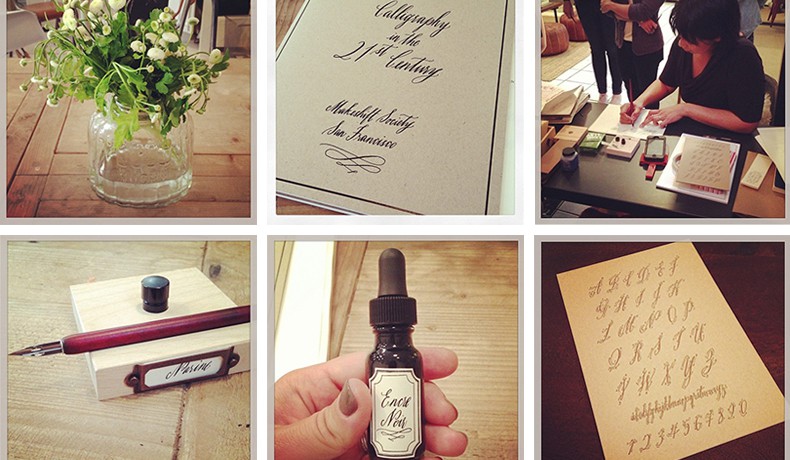 Calligraphy
in the
21st Century
Makeshift Society
San Francisco
Encre
Noir
A B C D E F
G H I J K
L M N O P
Q R S T U
V W X Y Z
1 2 3 4 5 6 7 8 9 0